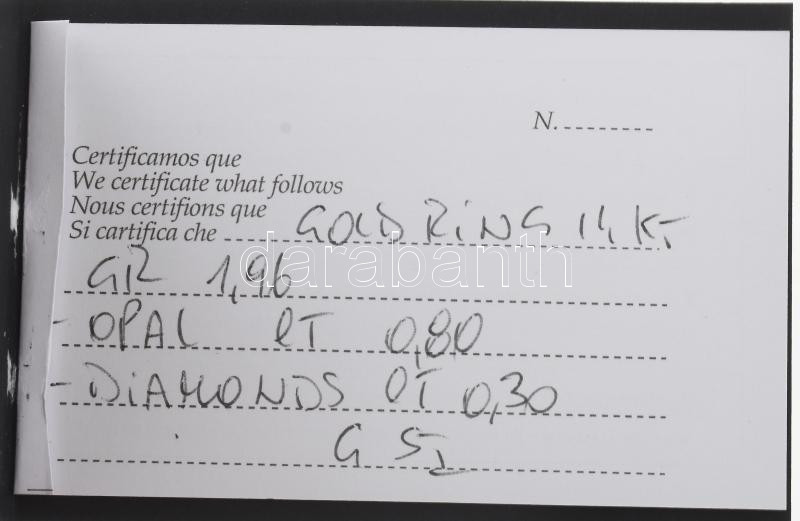 N.
Certificamos que
We certificate what follows
Nous certifions que
Si cartifica che GOLD RING 14 K-
darabanth
GR 1,96
- OPAL CT 0,80
- DIAMONDS CT 0,30
G SI